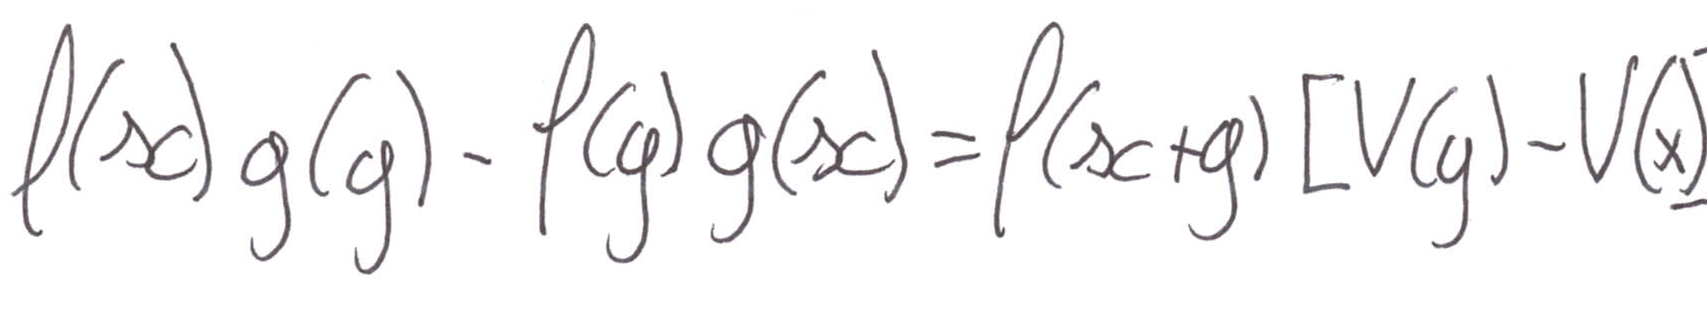 f(x) g(y) - f(y) g(x) = f(x+y) [V(y) - V(x)]